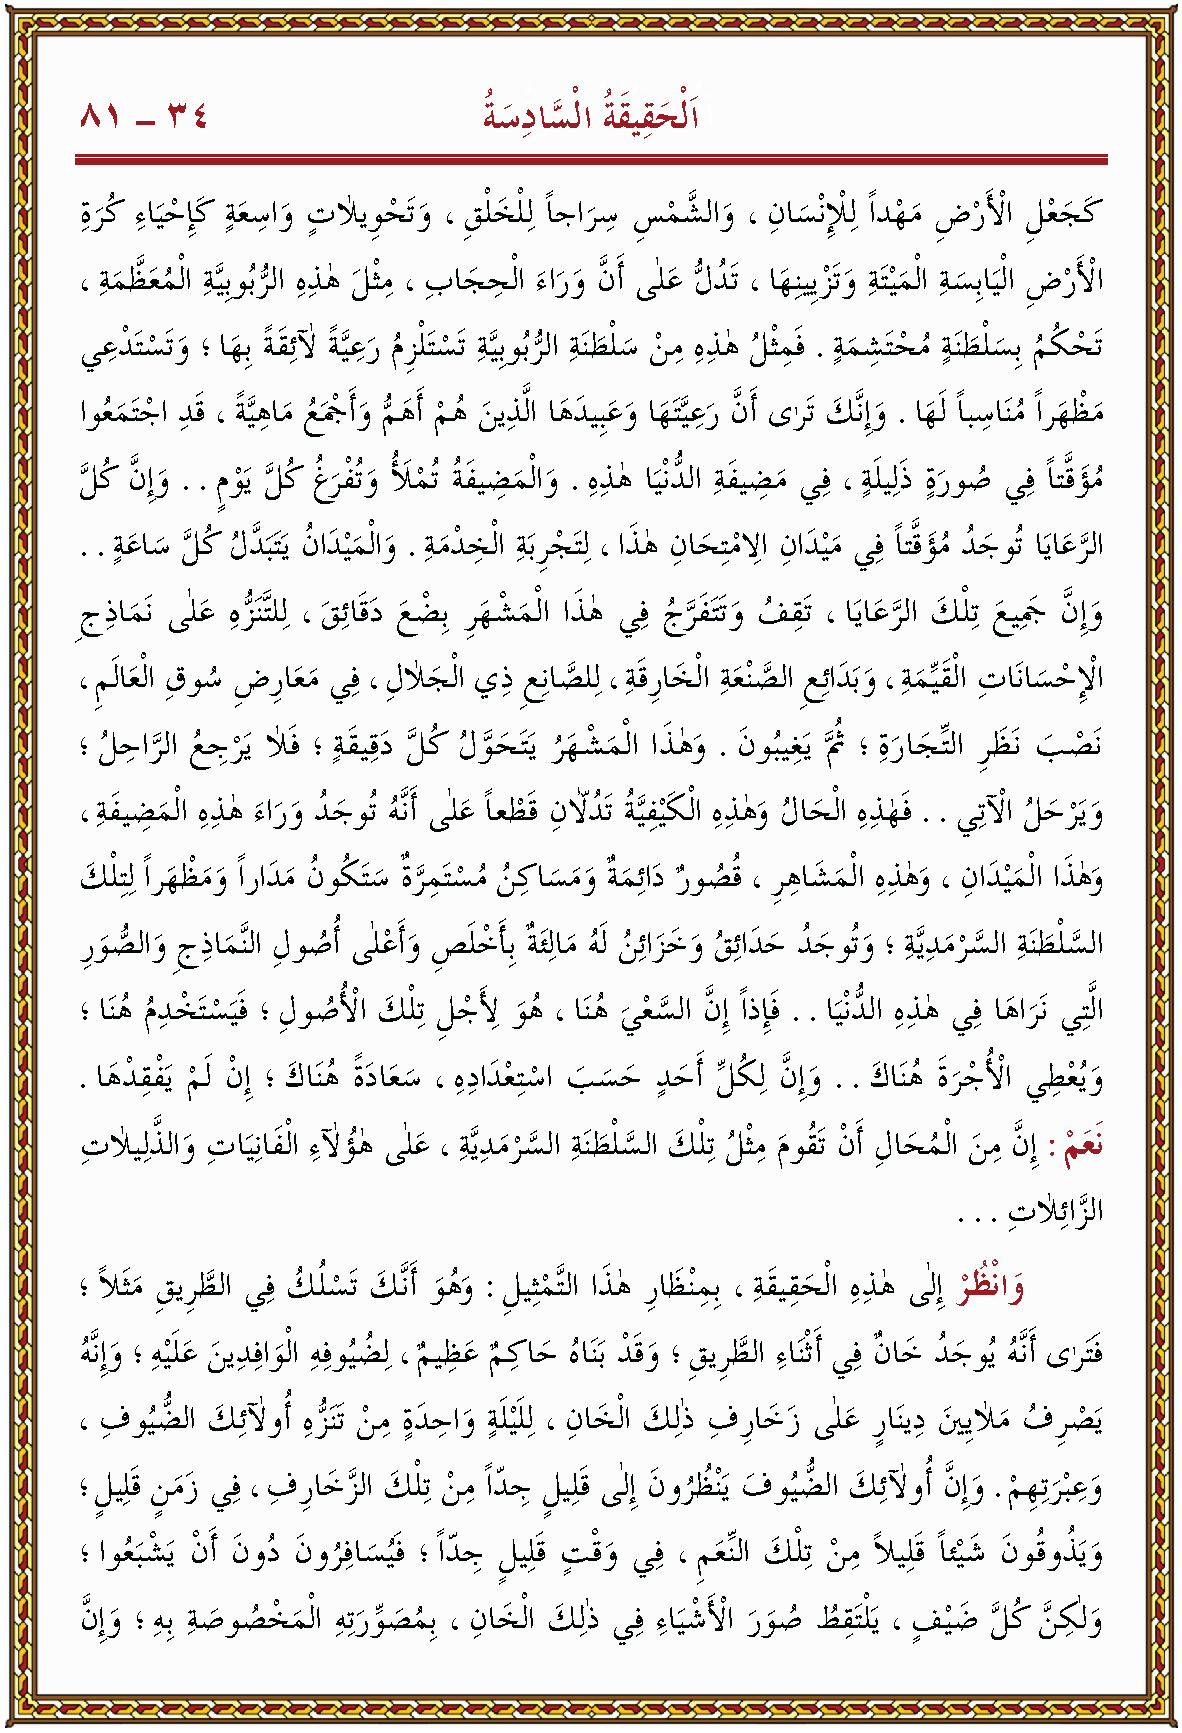 اَلْحَقِيقَةُ السَّادِسَةُ ٣٤ – ٨١
كَجَعْلِ الْأَرْضِ مَهْداً لِلْإِنْسَانِ ، وَالشَّمْسِ سِرَاجاً لِلْخَلْقِ ، وَتَحْوِيلَاتٍ وَاسِعَةٍ كَإِحْيَاءِ كُرَةِ
الْأَرْضِ الْيَابِسَةِ الْمَيْتَةِ وَتَزْيِينِهَا ، تَدُلُّ عَلٰى أَنَّ وَرَاءَ الْحِجَابِ ، مِثْلَ هٰذِهِ الرُّبُوبِيَّةِ الْمُعَظَّمَةِ ،
تَحْكُمُ بِسَلْطَنَةٍ مُحْتَشِمَةٍ . فَمِثْلُ هٰذِهِ مِنْ سَلْطَنَةِ الرُّبُوبِيَّةِ تَسْتَلْزِمُ رَعِيَّةً لَائِقَةً بِهَا ؛ وَتَسْتَدْعِي
مَظْهَراً مُنَاسِباً لَهَا . وَإِنَّكَ تَرٰى أَنَّ رَعِيَّتَهَا وَعَبِيدَهَا الَّذِينَ هُمْ أَهَمُّ وَأَجْمَعُ مَاهِيَّةً ، قَدِ اجْتَمَعُوا
مُؤَقَّتاً فِي صُورَةٍ ذَلِيلَةٍ ، فِي مَضِيفَةِ الدُّنْيَا هٰذِهِ . وَالْمَضِيفَةُ تُمْلَأُ وَتُفْرَغُ كُلَّ يَوْمٍ . . وَإِنَّ كُلَّ
الرَّعَايَا تُوجَدُ مُؤَقَّتاً فِي مَيْدَانِ الِامْتِحَانِ هٰذَا ، لِتَجْرِبَةِ الْخِدْمَةِ . وَالْمَيْدَانُ يَتَبَدَّلُ كُلَّ سَاعَةٍ . .
وَإِنَّ جَمِيعَ تِلْكَ الرَّعَايَا ، تَقِفُ وَتَتَفَرَّجُ فِي هٰذَا الْمَشْهَرِ بِضْعَ دَقَائِقَ ، لِلتَّنَزُّهِ عَلٰى نَمَاذِجِ
الْإِحْسَانَاتِ الْقَيِّمَةِ ، وَبَدَائِعِ الصَّنْعَةِ الْخَارِقَةِ ، لِلصَّانِعِ ذِي الْجَلَالِ ، فِي مَعَارِضِ سُوقِ الْعَالَمِ ،
نَصْبَ نَظَرِ التِّجَارَةِ ؛ ثُمَّ يَغِيبُونَ . وَهٰذَا الْمَشْهَرُ يَتَحَوَّلُ كُلَّ دَقِيقَةٍ ؛ فَلَا يَرْجِعُ الرَّاحِلُ ؛
وَيَرْحَلُ الْآتِي . . فَهٰذِهِ الْحَالُ وَهٰذِهِ الْكَيْفِيَّةُ تَدُلَّانِ قَطْعاً عَلٰى أَنَّهُ تُوجَدُ وَرَاءَ هٰذِهِ الْمَضِيفَةِ ،
وَهٰذَا الْمَيْدَانِ ، وَهٰذِهِ الْمَشَاهِرِ ، قُصُورٌ دَائِمَةٌ وَمَسَاكِنُ مُسْتَمِرَّةٌ سَتَكُونُ مَدَاراً وَمَظْهَراً لِتِلْكَ
السَّلْطَنَةِ السَّرْمَدِيَّةِ ؛ وَتُوجَدُ حَدَائِقُ وَخَزَائِنُ لَهُ مَالِئَةٌ بِأَخْلَصِ وَأَعْلٰى أُصُولِ النَّمَاذِجِ وَالصُّوَرِ
الَّتِي نَرَاهَا فِي هٰذِهِ الدُّنْيَا . . فَإِذاً إِنَّ السَّعْيَ هُنَا ، هُوَ لِأَجْلِ تِلْكَ الْأُصُولِ ؛ فَيَسْتَخْدِمُ هُنَا ؛
وَيُعْطِي الْأُجْرَةَ هُنَاكَ . . وَإِنَّ لِكُلِّ أَحَدٍ حَسَبَ اسْتِعْدَادِهِ ، سَعَادَةً هُنَاكَ ؛ إِنْ لَمْ يَفْقِدْهَا .
نَعَمْ : إِنَّ مِنَ الْمُحَالِ أَنْ تَقُومَ مِثْلُ تِلْكَ السَّلْطَنَةِ السَّرْمَدِيَّةِ ، عَلٰى هٰؤُلَاءِ الْفَانِيَاتِ وَالذَّلِيلَاتِ
الزَّائِلَاتِ . . .
وَانْظُرْ إِلٰى هٰذِهِ الْحَقِيقَةِ ، بِمِنْظَارِ هٰذَا التَّمْثِيلِ : وَهُوَ أَنَّكَ تَسْلُكُ فِي الطَّرِيقِ مَثَلاً ؛
فَتَرٰى أَنَّهُ يُوجَدُ خَانٌ فِي أَثْنَاءِ الطَّرِيقِ ؛ وَقَدْ بَنَاهُ حَاكِمٌ عَظِيمٌ ، لِضُيُوفِهِ الْوَافِدِينَ عَلَيْهِ ؛ وَإِنَّهُ
يَصْرِفُ مَلَايِينَ دِينَارٍ عَلٰى زَخَارِفِ ذٰلِكَ الْخَانِ ، لِلَيْلَةٍ وَاحِدَةٍ مِنْ تَنَزُّهِ أُولٰئِكَ الضُّيُوفِ ،
وَعِبْرَتِهِمْ . وَإِنَّ أُولٰئِكَ الضُّيُوفَ يَنْظُرُونَ إِلٰى قَلِيلٍ جِدّاً مِنْ تِلْكَ الزَّخَارِفِ ، فِي زَمَنٍ قَلِيلٍ ؛
وَيَذُوقُونَ شَيْئاً قَلِيلاً مِنْ تِلْكَ النِّعَمِ ، فِي وَقْتٍ قَلِيلٍ جِدّاً ؛ فَيُسَافِرُونَ دُونَ أَنْ يَشْبَعُوا ؛
وَلٰكِنَّ كُلَّ ضَيْفٍ ، يَلْتَقِطُ صُوَرَ الْأَشْيَاءِ فِي ذٰلِكَ الْخَانِ ، بِمُصَوِّرَتِهِ الْمَخْصُوصَةِ بِهِ ؛ وَإِنَّ